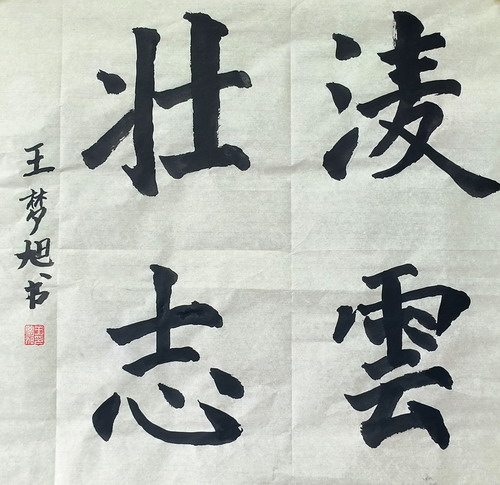 淩雲
壯志
王梦旭书